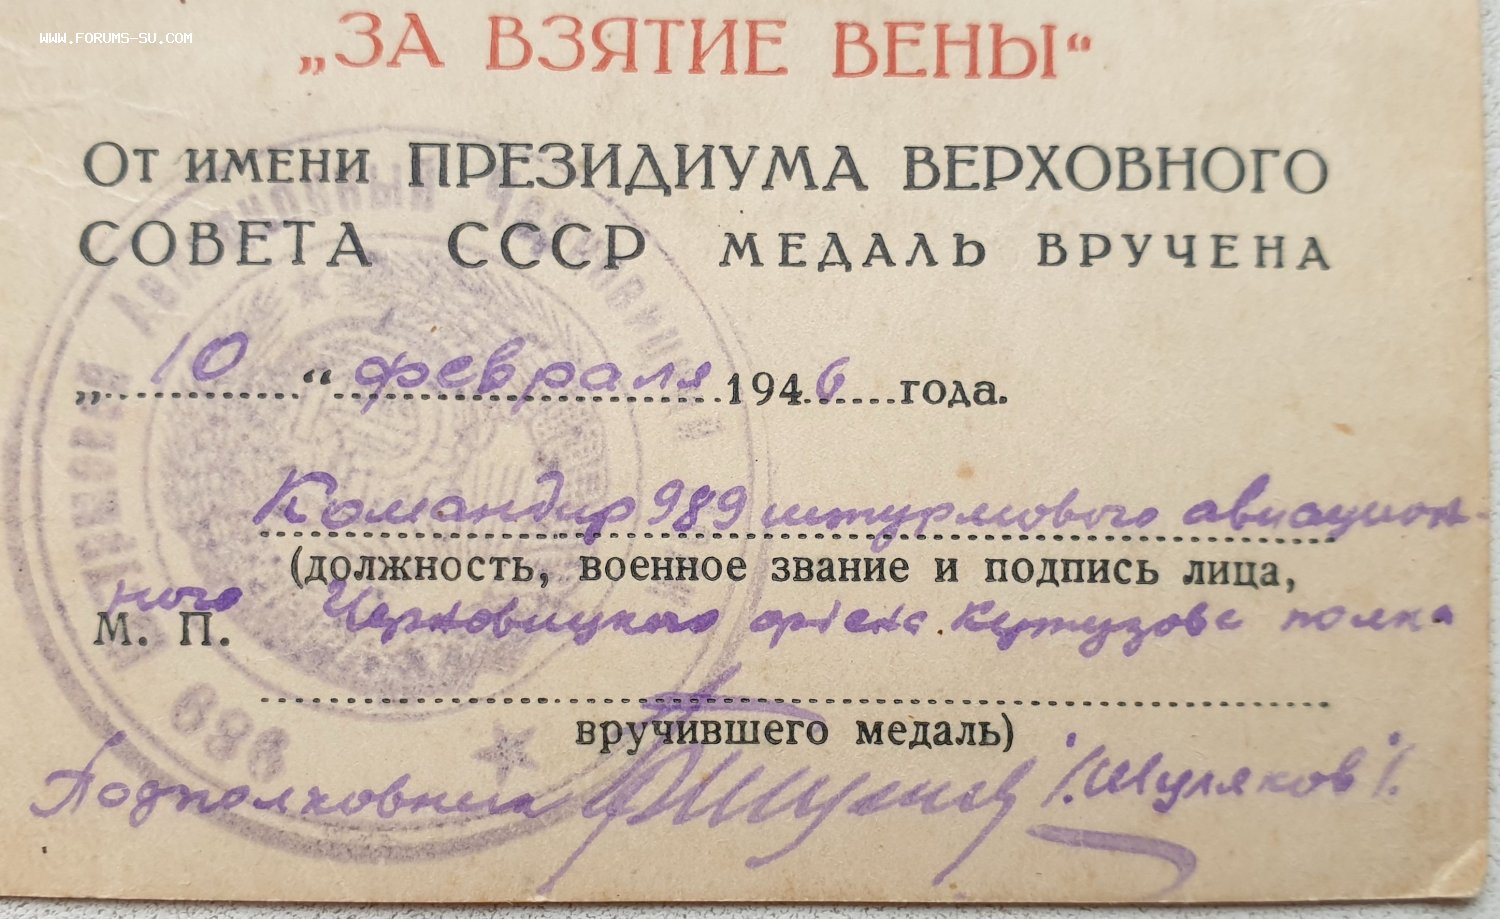 WWW.FORUMS-SU.COM
„ЗА ВЗЯТИЕ ВЕНЫ“
От имени ПРЕЗИДИУМА ВЕРХОВНОГО
СОВЕТА СССР МЕДАЛЬ ВРУЧЕНА
„10“ февраля 1946 года.
Командир 989 штурмового авиацион-
(должность, военное звание и подпись лица,
ного Черновицкого ордена Кутузова полка
М. П.
вручившего медаль)
Подполковник /Шуляков/.
989